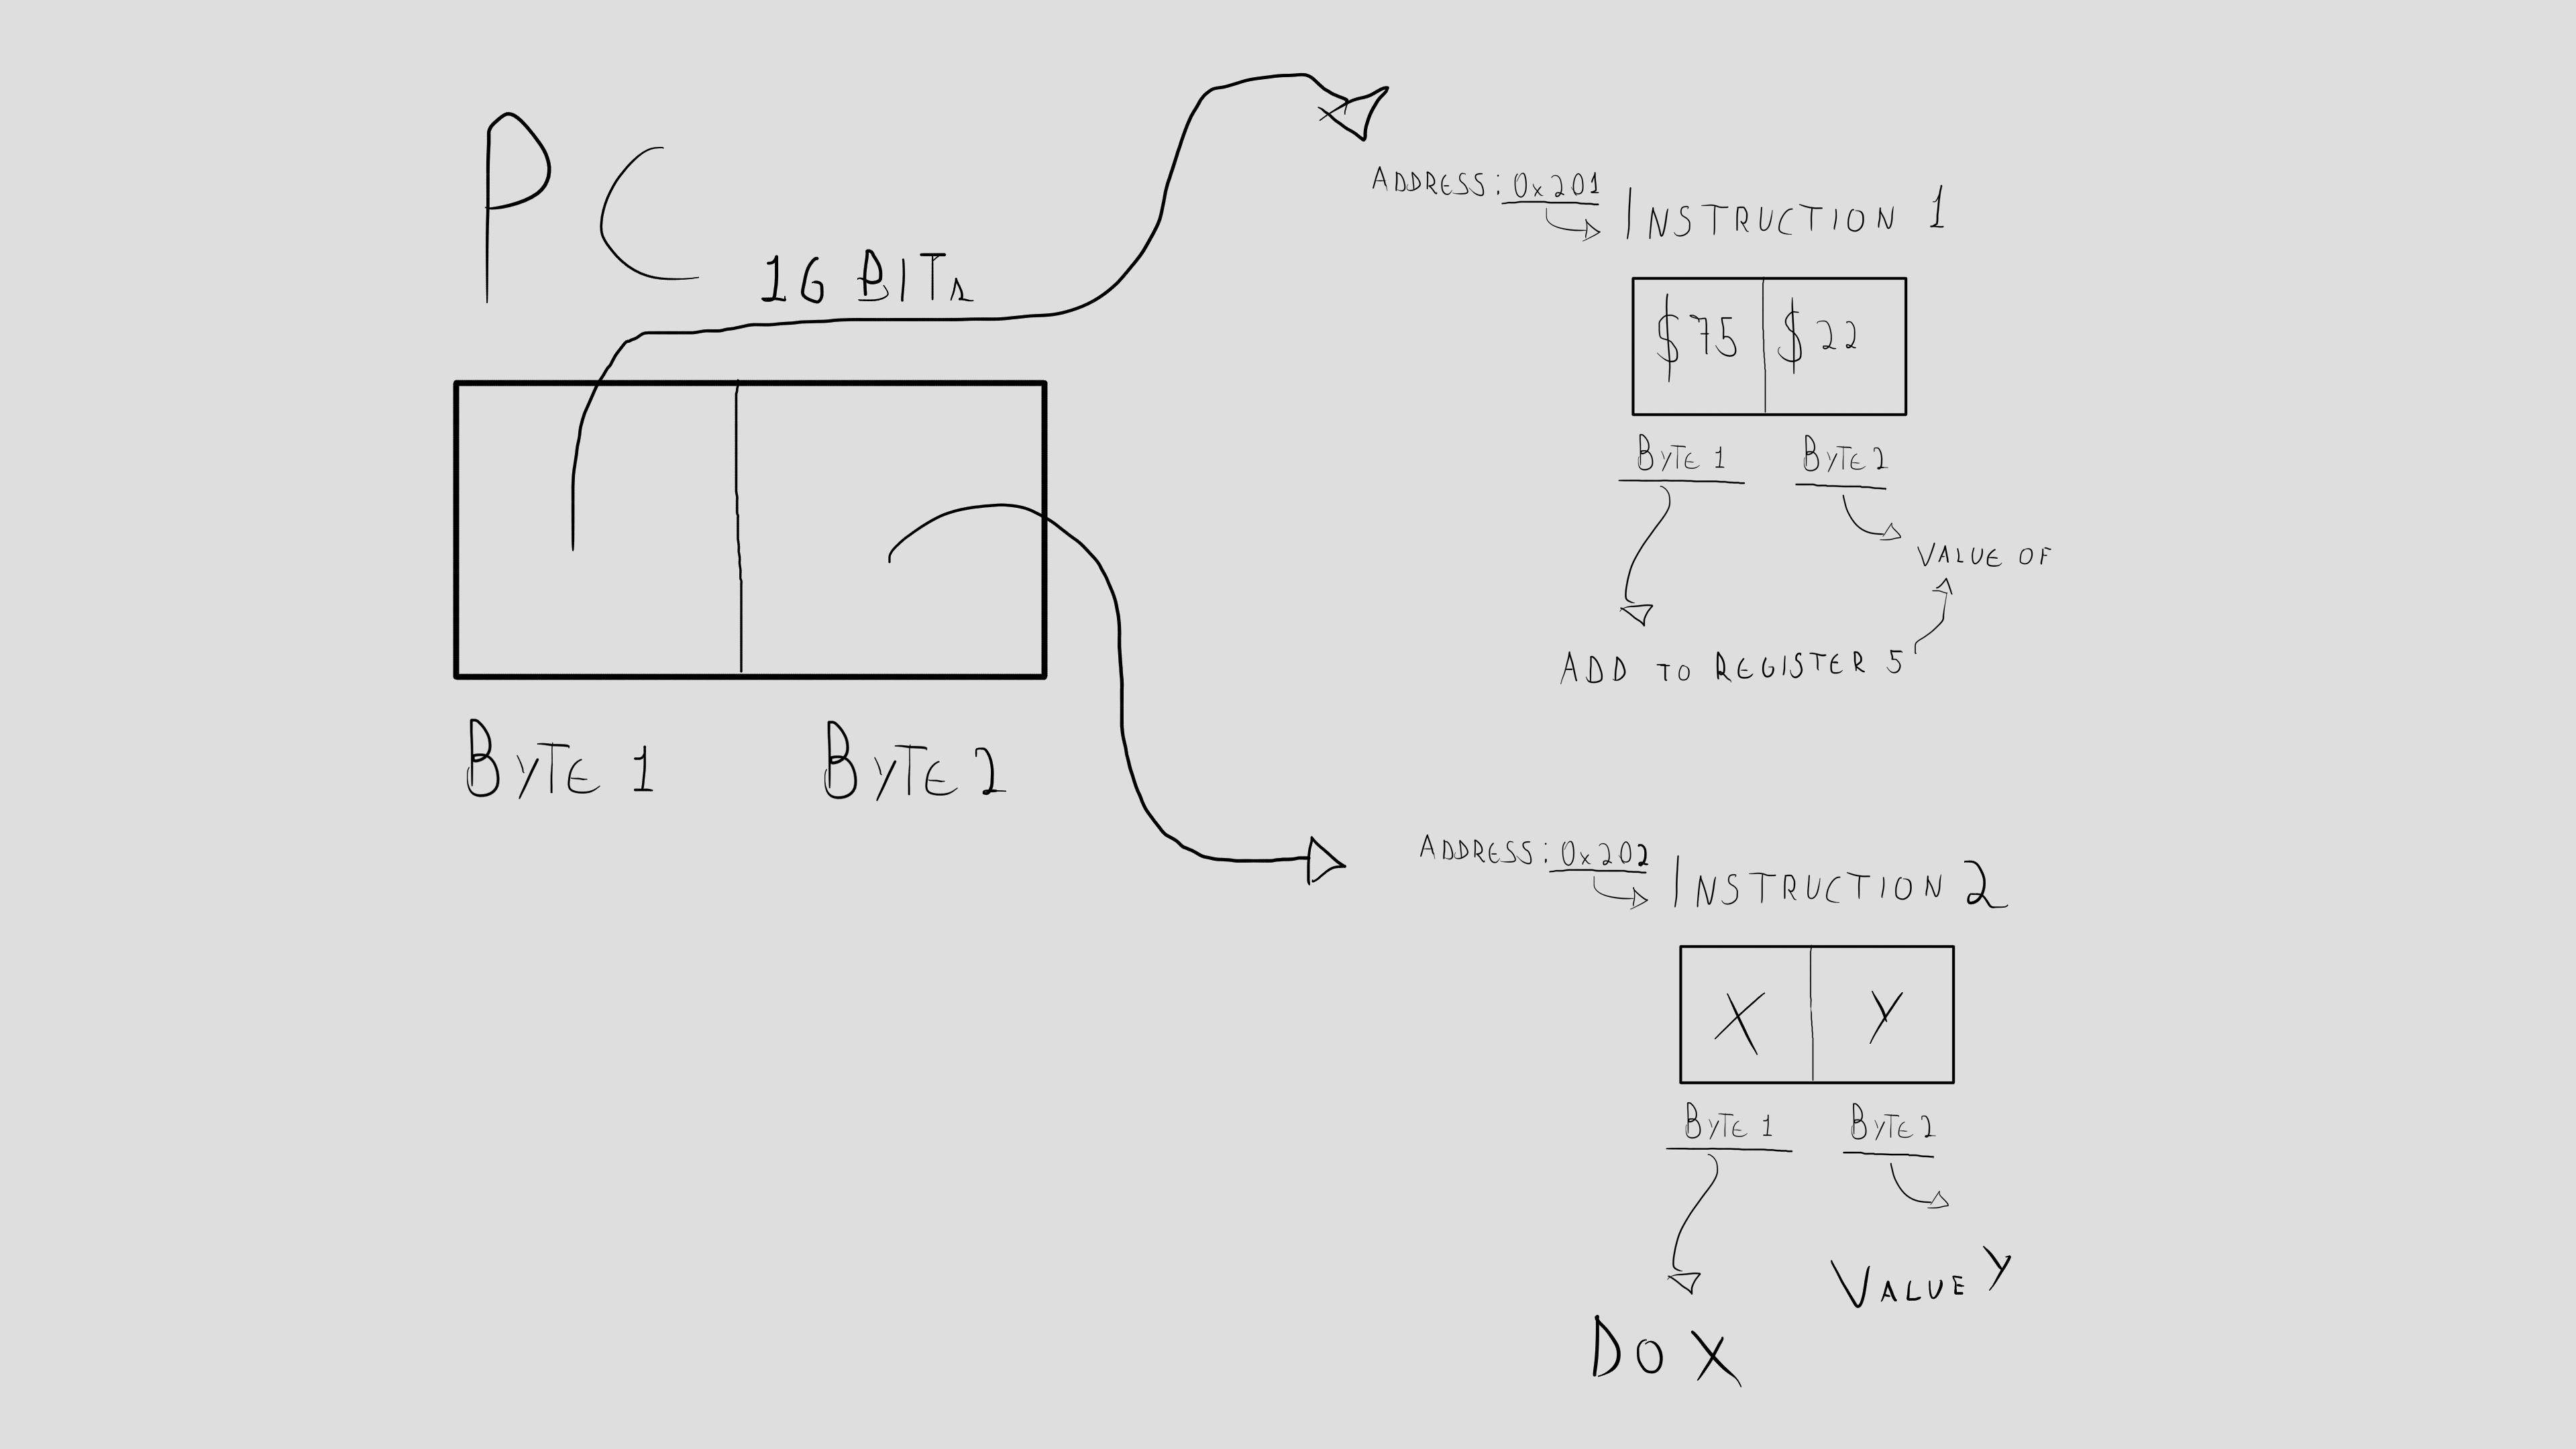 PC
16 BITs
BYTE 1
BYTE 2
ADDRESS: 0x201
INSTRUCTION 1
$75
$22
BYTE 1
BYTE 2
VALUE OF
ADD TO REGISTER 5
ADDRESS: 0x202
INSTRUCTION 2
X
Y
BYTE 1
BYTE 2
VALUE Y
DO X